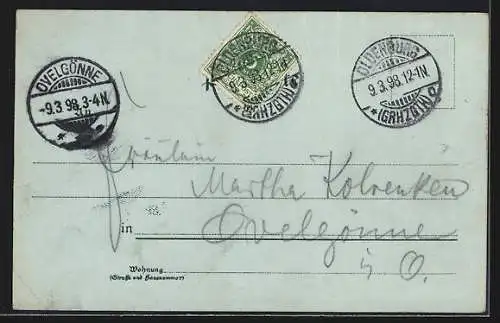 OLDENBURG
9.3.98.12-1N.
*(GRHZGTH)a
OLDENBURG
9.3.98.12-1N.
*(GRHZGTH)a
OVELGÖNNE
-9.3.98.3-4N.
Fräulein
Martha Kolvenken
in Ovelgönne
i/ O.
Wohnung
(Straße und Hausnummer)